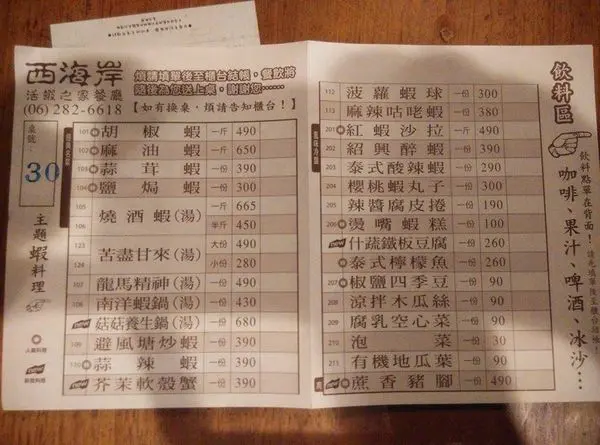 西海岸
活蝦之家餐廳
(06) 282-6618
煩請填單後至櫃台結帳，餐飲將
隨後為您送上桌，謝謝您……
【如有換桌，煩請告知櫃台！】
桌號
30
主題蝦料理
101 胡椒蝦 一斤 490
102 麻油蝦 一斤 650
103 蒜茸蝦 一份 390
104 鹽焗蝦 一份 300
105 燒酒蝦(湯) 一斤 665
106 半斤 450
123 苦盡甘來(湯) 大份 490
124 小份 280
107 龍馬精神(湯) 一份 490
108 南洋蝦鍋(湯) 一份 430
菇菇養生鍋(湯) 一份 680
109 避風塘炒蝦 一份 390
110 蒜辣蝦 一份 390
芥茉軟殼蟹 一份 390
112 菠蘿蝦球 一份 300
113 麻辣咕咾蝦 一份 380
201 紅蝦沙拉 一斤 490
202 紹興醉蝦 一份 390
203 泰式酸辣蝦 一份 290
204 櫻桃蝦丸子 一份 300
205 辣醬腐皮捲 一份 190
206 燙嘴蝦糕 一份 100
什蔬鐵板豆腐 一份 260
泰式檸檬魚 一份 260
207 椒鹽四季豆 一份 90
208 涼拌木瓜絲 一份 90
209 腐乳空心菜 一份 90
210 泡菜 一份 30
211 有機地瓜葉 一份 90
蔗香豬腳 一份 490
飲料區
飲料點單在背面！
咖啡、果汁、啤酒、冰沙…